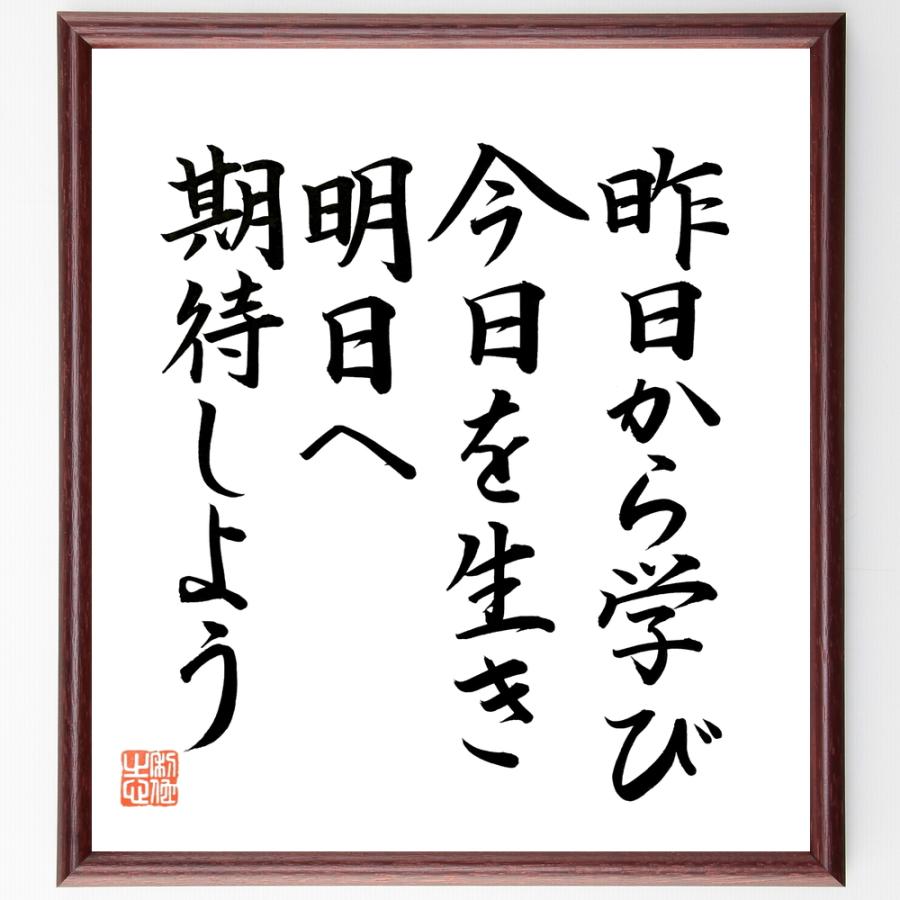 昨日から学び
今日を生き
明日へ
期待しよう